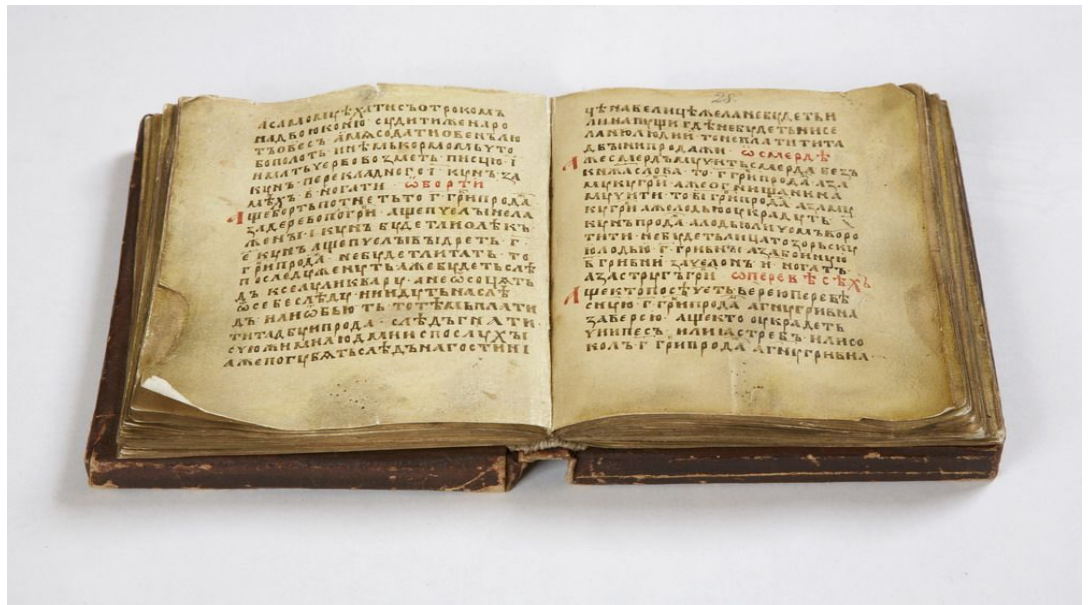 А САМОМУ ѢХАТИ СЪ ОТРОКОМЪ
НА ДВОЮ КОНЮ · СУДИТИ ЖЕ НА РО
ТЪ ОВЕСЪ · А МѦСО ДАТИ ОВЕНЪ ЛЮ
БО ПОЛОТЬ · ИНѢМЬ КОРМОМЬ УТО
ИМАТЬ УЕРВО ВОЗМЕТЬ · ПИСЦЮ · І ·
КУНЪ · ПЕРЕКЛАДНОГО · Е · КУНЪ · ЗА
МѢХЪ · В · НОГАТИ · Ѡ БОРТИ
АЩЕ БОРТЬ ПОТНЕТЬ ТО · Г · ГРИ ПРОДА
ЗА ДЕРЕВО ПОЛ ГРИ · АЩЕ ПУЕЛЪI НЕ ЛА
ЖЕНЪI · І · КУНЪ БУДЕТ ЛИ ОЛѢКЪ
Е КУНЪ АЩЕ ПУЕЛЪI ВЪIДРЕТЬ · Г ·
ГРИ ПРОДА · НЕ БУДЕТ ЛИ ТАТЬ · ТО
ПО СЛЕДУ ЖЕНУТЬ АЖЕ БУДЕТЬ СЛѢ
ДЪ К СЕЛУ ИЛИ К ВАРУ · А НЕ ѠСОЦѦТЬ
Ѡ СЕБЕ СЛѢДУ · НИ ИДУТЬ НА СЛѢ
ДЪ ИЛИ ѠБЬЮТЬ ТО ТѢМЬ ПЛАТИ
ТИ ТАДБУ И ПРОДА · СЛѢДЪ ГНАТИ ·
С УЮЖИМИ ЛЮДМИ И С ПОСЛУХЪI
АЖЕ ПОГУБѦТЬ СЛѢДЪ НА ГОСТИНІ
28
ЦѢ НА ВЕЛИЦѢ А СЕЛА НЕ БУДЕТЬ И
ЛИ НА ПУСТИ ГДѢ НЕ БУДЕТЬ НИ СЕ
ЛА НИ ЛЮДИИ ТО НЕ ПЛАТИТИ ТА
ДВЪI НИ ПРОДАЖИ · Ѡ СМЕРДѢ
АЖЕ СМЕРДЪ МУУИТЬ СМЕРДА БЕЗЪ
КНѦЖА СЛОВА · ТО · Г · ГРИ ПРОДА · А ЗА
МУКУ ГРИ · АЖЕ ОГНИЩАНИНА
МУУИТИ · ТО ВІ ГРИ ПРОДА · А ЗА МУ
КУ ГРИ · АЖЕ ЛОДЬЮ УКРАДУТЬ · З ·
КУНЪ ПРОДА · А ЛОДЬЮ ЛИУОМЪ ВОРО
ТИТИ · НЕ БУДЕТЬ ЛИЦА ТО ЗА МОРЬСКУ
Ю ЛОДЬЮ · Г · ГРИВНЪI · А ЗА БОИНУЮ
В ГРИВНИ · ЗА УЕЛОНЪ · И · НОГАТЪ
А ЗА СТРУГЪ ГРИ · Ѡ ПЕРЕВѢСѢХЪ
АЩЕ КТО ПОСѢУЕТЬ ВЕРЕЮ ПЕРЕВѢ
СНУЮ · Г · ГРИ ПРОДА · А Г͠НУ ГРИВНА
ЗА ВЕРЕЮ · АЩЕ КТО ОУКРАДЕТЬ
УИИ ПЕСЪ · ИЛИ ІАСТРЕБЪ · ИЛИ СО
КОЛЪ Г ГРИ ПРОДА · А Г͠НУ ГРИВНА